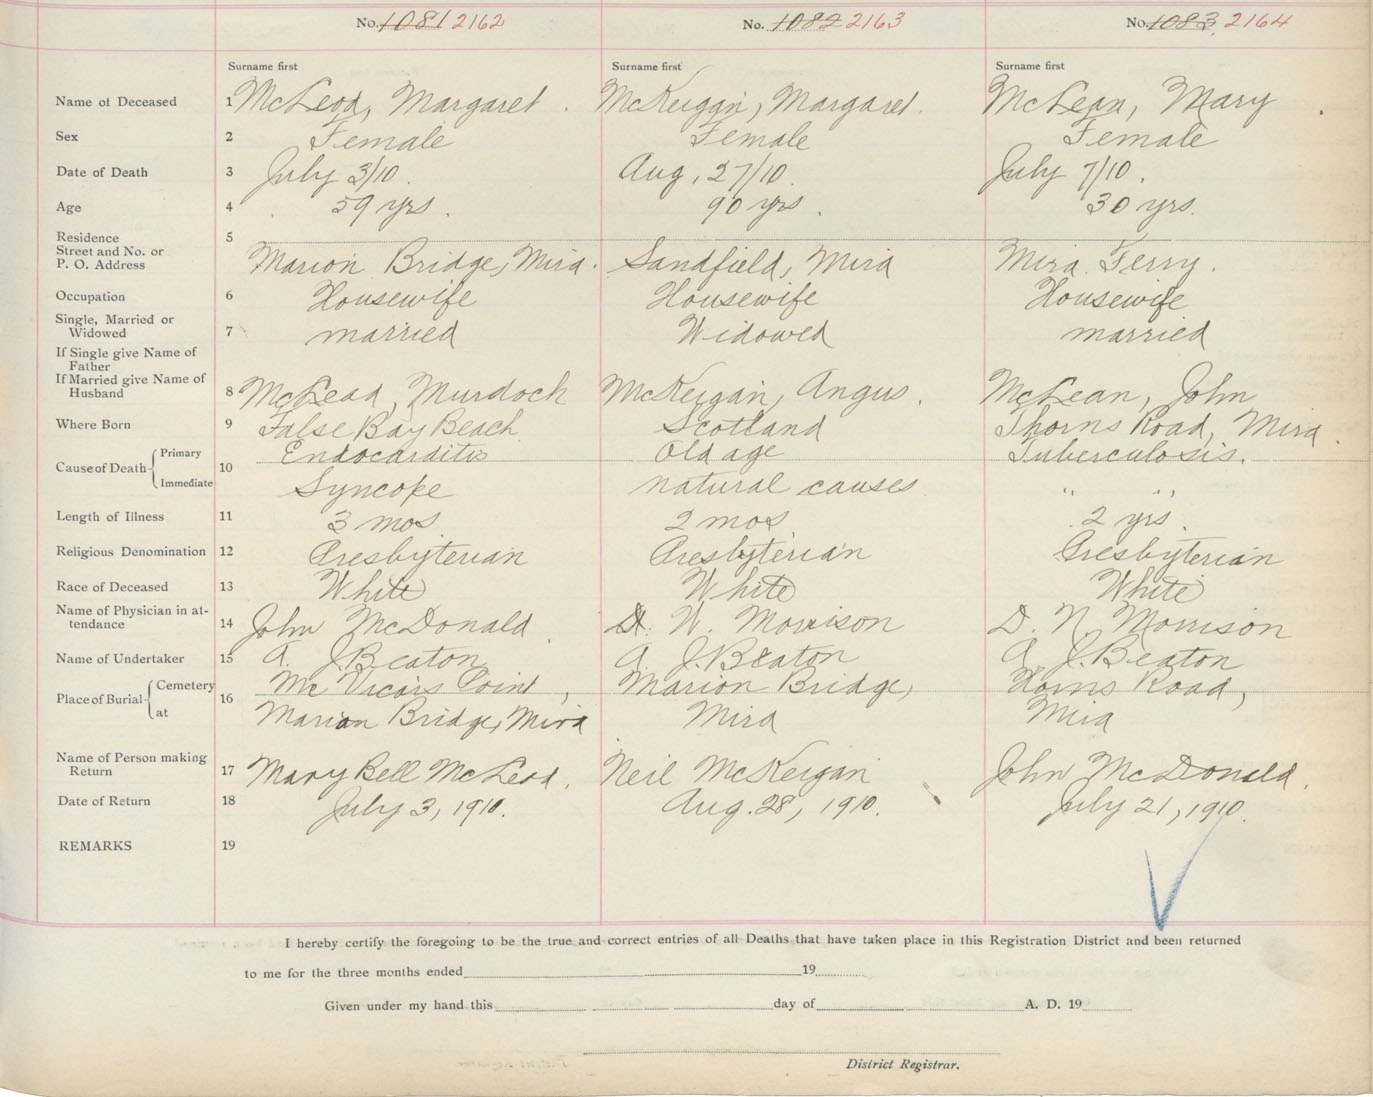 No. 1081 2162 No. 1082 2163 No. 1083 2164
Surname first Surname first Surname first
Name of Deceased 1 McLeod, Margaret. McKeigan, Margaret. McLean, Mary.
Sex 2 Female Female Female
Date of Death 3 July 3/10. Aug, 27/10. July 7/10.
Age 4 59 yrs. 90 yrs. 30 yrs.
Residence 5
Street and No. or
P. O. Address Marion Bridge, Mira. Sandfield, Mira Mira Ferry.
Occupation 6 Housewife Housewife Housewife
Single, Married or
Widowed 7 married Widowed married
If Single give Name of
Father
If Married give Name of
Husband 8 McLeod, Murdoch McKeigan, Angus. McLean, John
Where Born 9 False Bay Beach Scotland Thorns Road, Mira.
Cause of Death Primary 10 Endocarditis Old age Tuberculosis.
Immediate Syncope natural causes " "
Length of Illness 11 3 mos 2 mos 2 yrs.
Religious Denomination 12 Presbyterian Presbyterian Presbyterian
Race of Deceased 13 White White White
Name of Physician in at-
tendance 14 John McDonald. W. Morrison D. N. Morrison
Name of Undertaker 15 A. J. Beaton A. J. Beaton A. J. Beaton
Place of Burial Cemetery 16 Mc Vicars Point, Marion Bridge, Horns Road,
at Marion Bridge, Mira Mira Mira
Name of Person making
Return 17 Mary Bell McLeod. Neil McKeigan John McDonald.
Date of Return 18 July 3, 1910. Aug. 28, 1910. July 21, 1910.
REMARKS 19
I hereby certify the foregoing to be the true and correct entries of all Deaths that have taken place in this Registration District and been returned
to me for the three months ended 19
Given under my hand this day of A. D. 19
District Registrar.